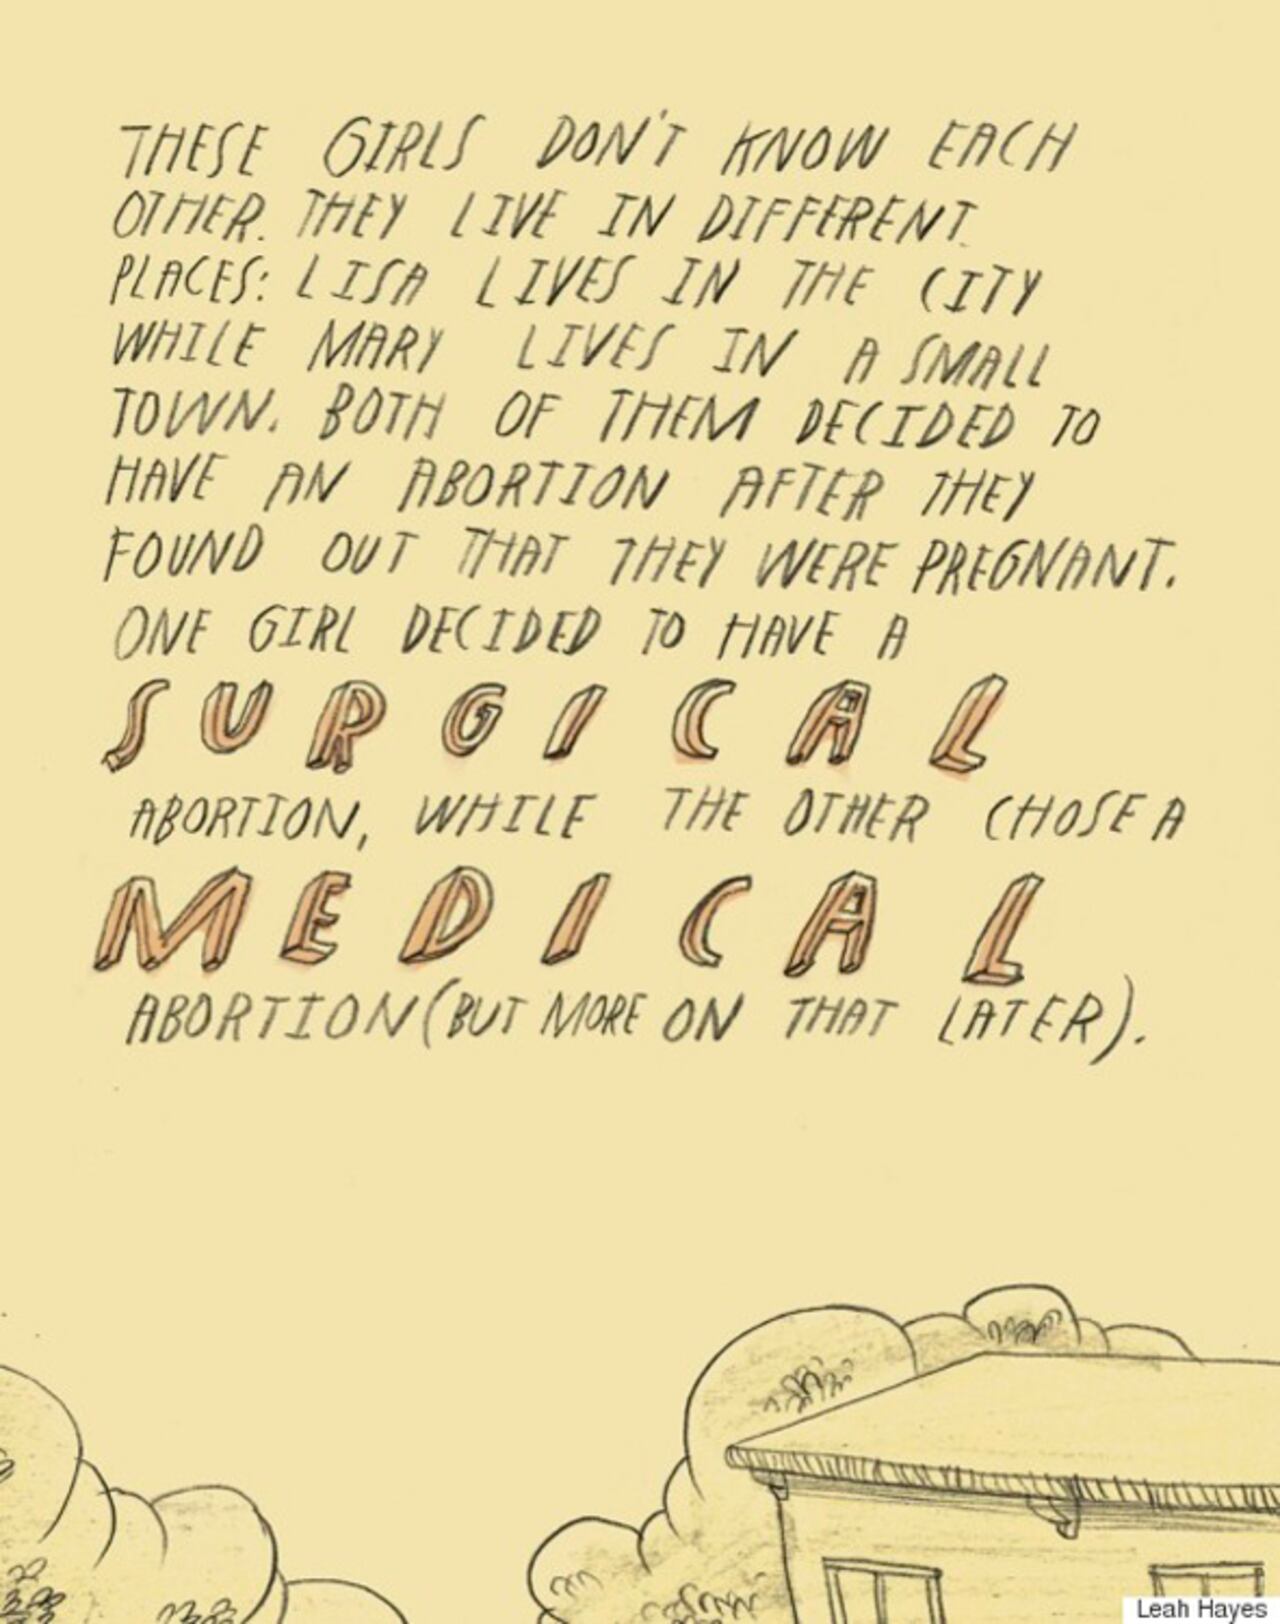 THESE GIRLS DON'T KNOW EACH
OTHER. THEY LIVE IN DIFFERENT
PLACES: LISA LIVES IN THE CITY
WHILE MARY LIVES IN A SMALL
TOWN. BOTH OF THEM DECIDED TO
HAVE AN ABORTION AFTER THEY
FOUND OUT THAT THEY WERE PREGNANT.
ONE GIRL DECIDED TO HAVE A
SURGICAL
ABORTION, WHILE THE OTHER CHOSE A
MEDICAL
ABORTION (BUT MORE ON THAT LATER).
Leah Hayes